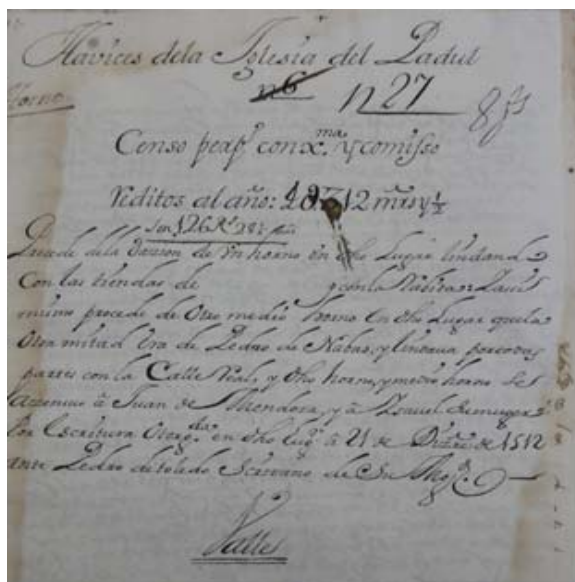 Havices dela Iglesia del Padul
Horno
n 6 n 27 8 fs
Censo perpº con xma y comisso
Reditos al año: 12 mrs y ½
Son 126 Rs 28½
Procede dela de Vn horno en dho Lugar lindando
Con las tiendas de y con la
mismo procede de Otro medio horno en dho Lugar quela
Otra mitad Era de Pedro de y lindaua por todas
partes con la Calle Real, y dho horno, y medio horno se
à Juan de Mendoza, y à Ysauel su muger
Por Escritura Otorgda en dho lugr à 21 de de 1512
ante Pedro de toledo Scrivano de Su Magd.
Valle